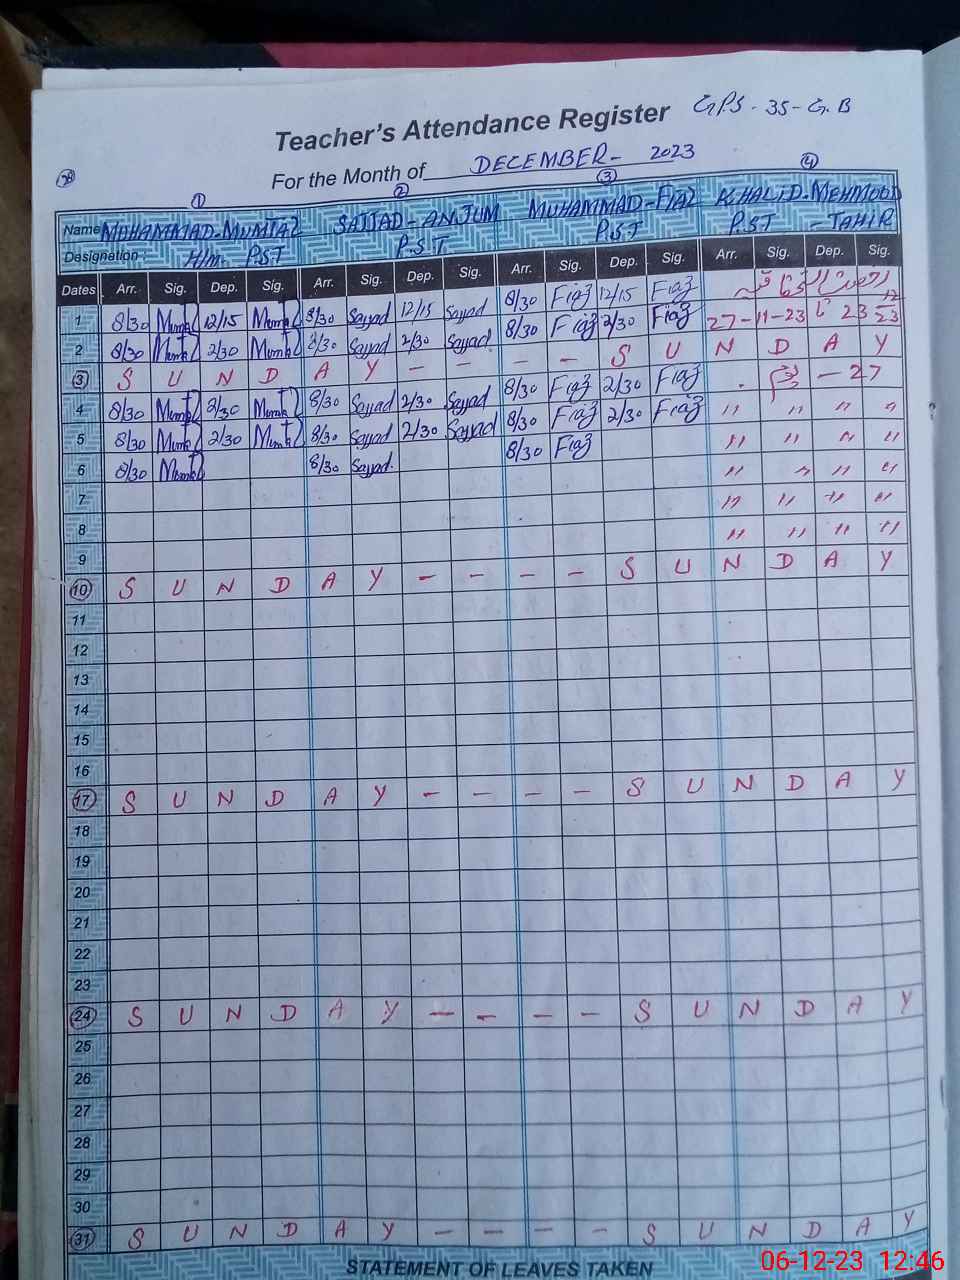 Teacher's Attendance Register G.P.S - 35 - G.B
For the Month of DECEMBER - 2023
① ② ③ ④
Name MUHAMMAD-MUMTAZ SAJJAD-ANJUM MUHAMMAD-FIAZ KHALID-MEHMOOD
Designation: H/m. P.S.T P.S.T P.S.T P.S.T -TAHIR
Dates Arr. Sig. Dep. Sig. Arr. Sig. Dep. Sig. Arr. Sig. Dep. Sig. Arr. Sig. Dep. Sig.
1 8/30 Mumtaz 12/15 Mumtaz 8/30 Sajjad 12/15 Sajjad 8/30 Fiaz 12/15 Fiaz
2 8/30 Mumtaz 2/30 Mumtaz 8/30 Sajjad 2/30 Sajjad 8/30 Fiaz 2/30 Fiaz 27-11-23
3 S U N D A Y - - - - S U N D A Y
4 8/30 Mumtaz 2/30 Mumtaz 8/30 Sajjad 2/30 Sajjad 8/30 Fiaz 2/30 Fiaz - 27
5 8/30 Mumtaz 2/30 Mumtaz 8/30 Sajjad 2/30 Sajjad 8/30 Fiaz 2/30 Fiaz " " " "
6 8/30 Mumtaz 8/30 Sajjad 8/30 Fiaz " " " "
7 " " " "
8 " " " "
9 " " " "
10 S U N D A Y - - - - S U N D A Y
11
12
13
14
15
16
17 S U N D A Y - - - - S U N D A Y
18
19
20
21
22
23
24 S U N D A Y - - - - S U N D A Y
25
26
27
28
29
30
31 S U N D A Y - - - - S U N D A Y
STATEMENT OF LEAVES TAKEN
06-12-23 12:46